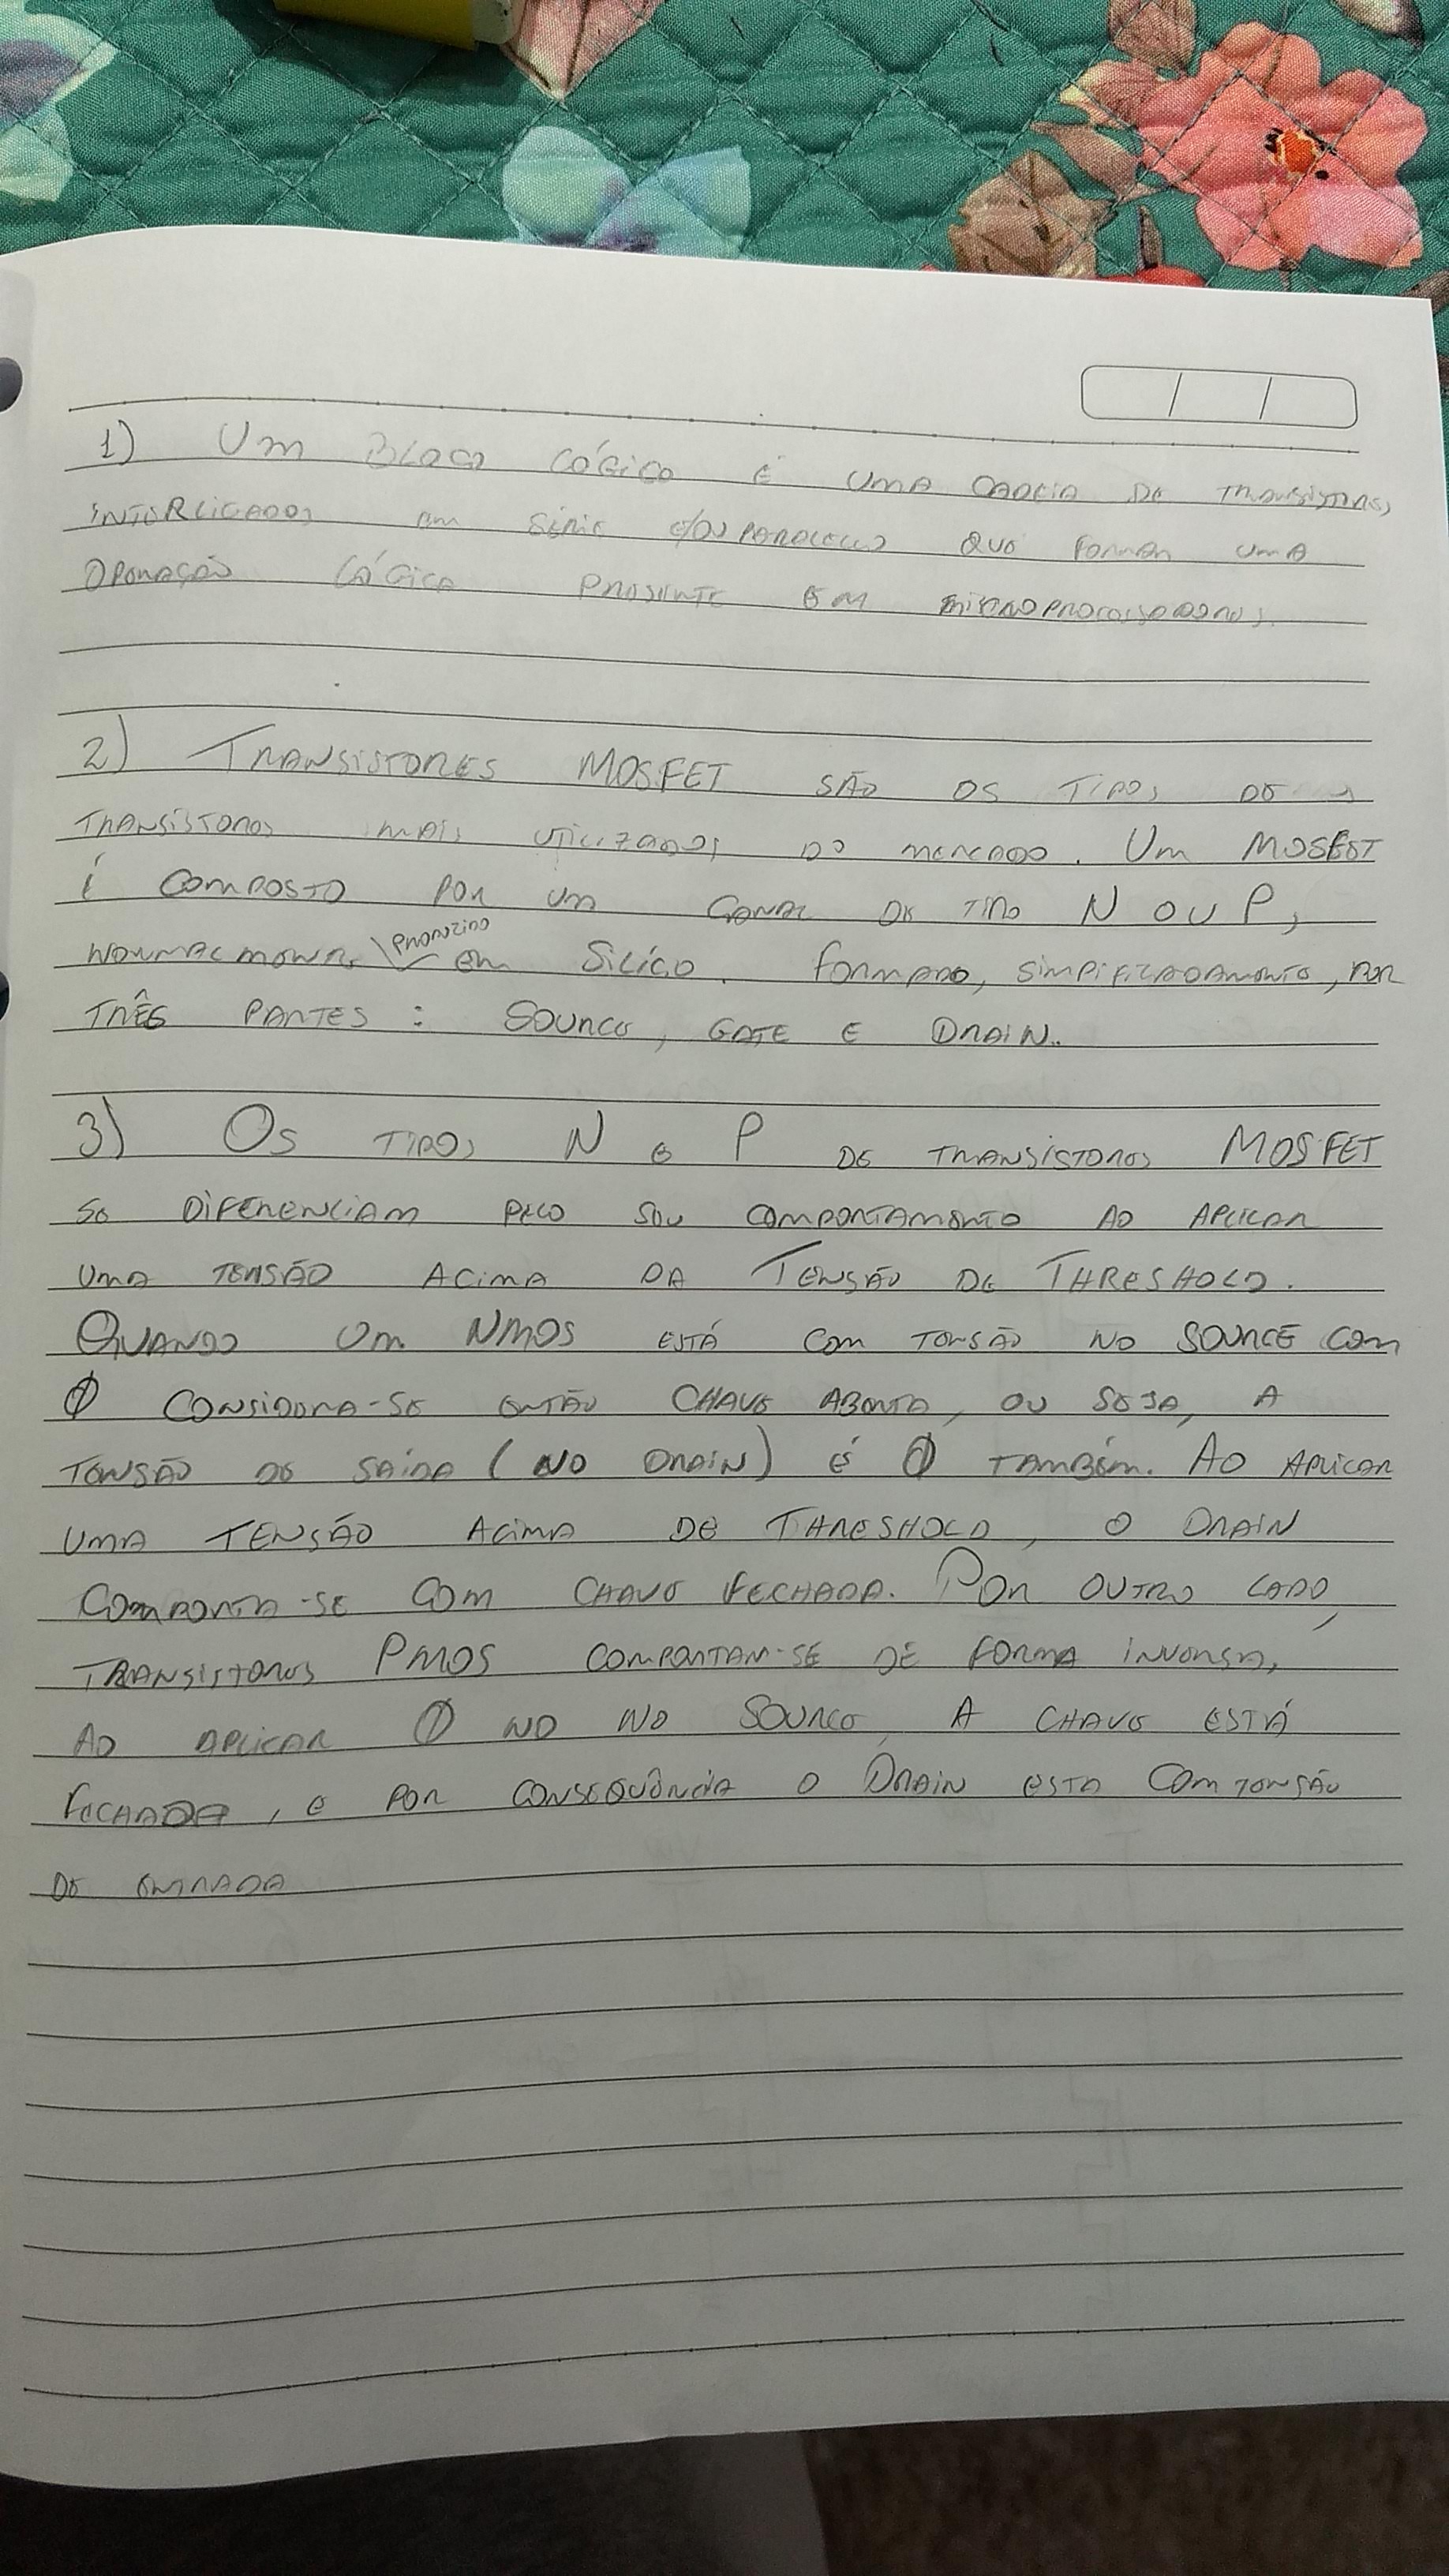 1) Um Bloco Lógico é uma cadeia de transistores
interligados em série e/ou paralelo que formam uma
operação lógica presente em microprocessadores.
2) TRANSISTORES MOSFET são os tipos de
transistores mais utilizados do mercado. Um MOSFET
é composto por um canal de tipo N ou P,
normalmente produzido em Silício. Formado, simplificadamente, por
três partes: Source, Gate e Drain.
3) Os tipos N e P de transistores MOSFET
se diferenciam pelo seu comportamento ao aplicar
uma tensão acima da Tensão de Threshold.
Quando um NMOS está com tensão no source com
0 considera-se então chave aberta, ou seja, a
tensão de saída (no Drain) é 0 também. Ao aplicar
uma tensão acima de Threshold, o Drain
comporta-se com chave fechada. Por outro lado,
transistores PMOS comportam-se de forma inversa,
Ao aplicar 0 no no source, a chave está
fechada, e por consequência o Drain esta com tensão
de entrada